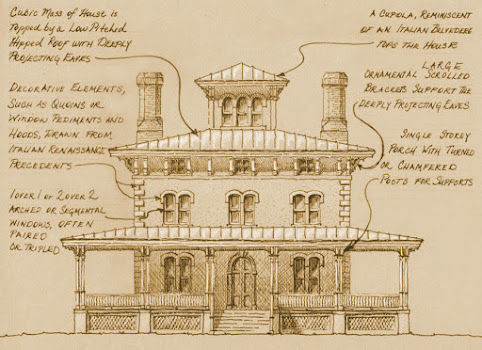 Cubic Mass of House is
Topped by a Low Pitched
Hipped Roof with Deeply
Projecting Eaves
Decorative Elements,
Such as Quoins or
Window Pediments and
Hoods, Drawn from
Italian Renaissance
Precedents
1 over 1 or 2 over 2
Arched or Segmental
Windows, Often
Paired
or Tripled
A Cupola, Reminiscent
of an Italian Belvedere
Tops the House
Large
Ornamental Scrolled
Brackets Support the
Deeply Projecting Eaves
Single Storey
Porch With Turned
or Chamfered
Posts for Supports